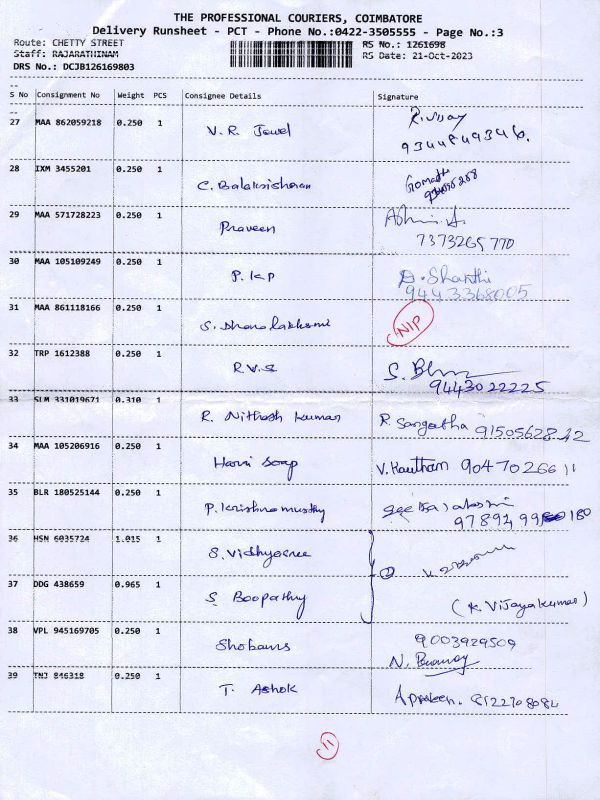 THE PROFESSIONAL COURIERS, COIMBATORE
Delivery Runsheet - PCT - Phone No.:0422-3505555 - Page No.:3
Route: CHETTY STREET RS No.: 1261698
Staff: RAJARATHINAM RS Date: 21-Oct-2023
DRS No.: DCJB126169803
--
S No Consignment No Weight PCS Consignee Details Signature
--
27 MAA 862059218 0.250 1 V.R. Jewel
28 IXM 3455201 0.250 1 C. Balakrishnan
29 MAA 571728223 0.250 1 Praveen
7373265770
30 MAA 105109249 0.250 1 P. K P D. Shanthi
9443368005
31 MAA 861118166 0.250 1 S. Dhanalakshmi NIP
32 TRP 1612388 0.250 1 R.V.S
9443022225
33 SLM 331019671 0.310 1 R. Nithesh Kumar R. Sangeetha
34 MAA 105206916 0.250 1 Hari Soap V. Kautham 9047026611
35 BLR 180525144 0.250 1 P. Krishnamurthy
36 HSN 6035724 1.015 1 S. Vidhyasree
37 DDG 438659 0.965 1 S. Boopathy (K. Vijayakumar)
38 VPL 945169705 0.250 1 Shobans 9003929509
39 TNJ 846318 0.250 1 T. Ashok A Praveen. 8122708084
11